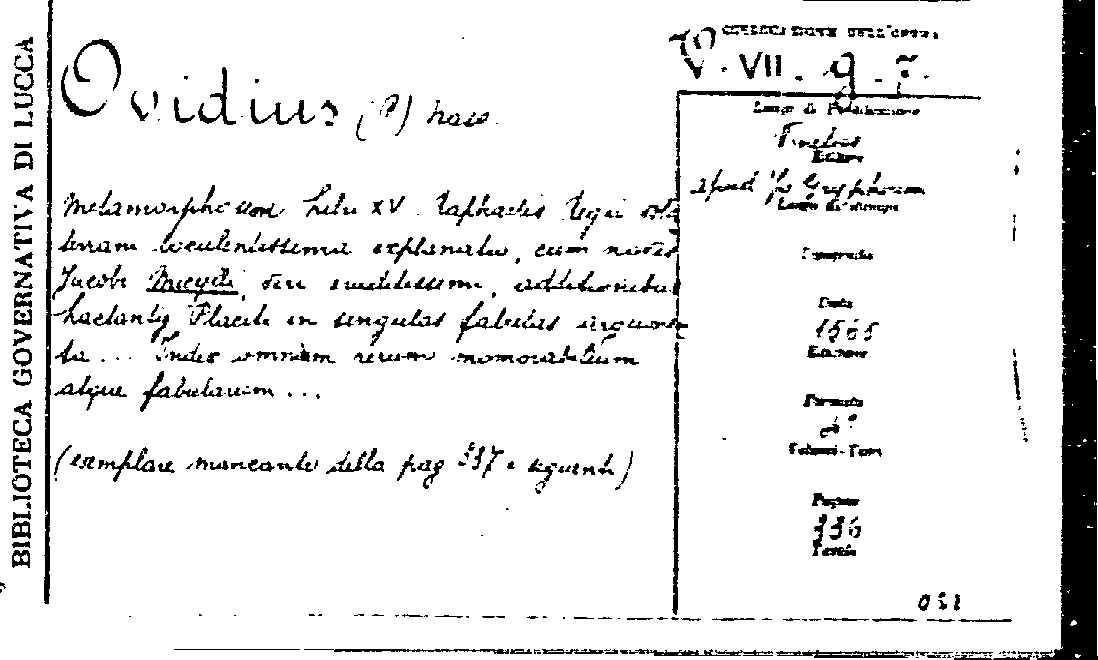 BIBLIOTECA GOVERNATIVA DI LUCCA
Ovidius (P) naso
Metamorphoseon Libri XV. Raphaelis Regii
luculentissima explanatio, cum novis
Jacobi Micylli, viri eruditissimi, additionibus
Lactantij Placiti in singulas fabulas argumen
ta... Index omnium rerum memorabilium
atque fabularum...
(esemplare mancante della pag 337 e seguenti)
COLLOCAZIONE DELL'OPERA
V. VII. 9. 7.
Luogo di Pubblicazione
Venetiis
Editore
apud Gryphium
Luogo di stampa
Tipografia
Data
1565
Edizione
Formato
Volumi - Tomi
Pagine
336
Tavole